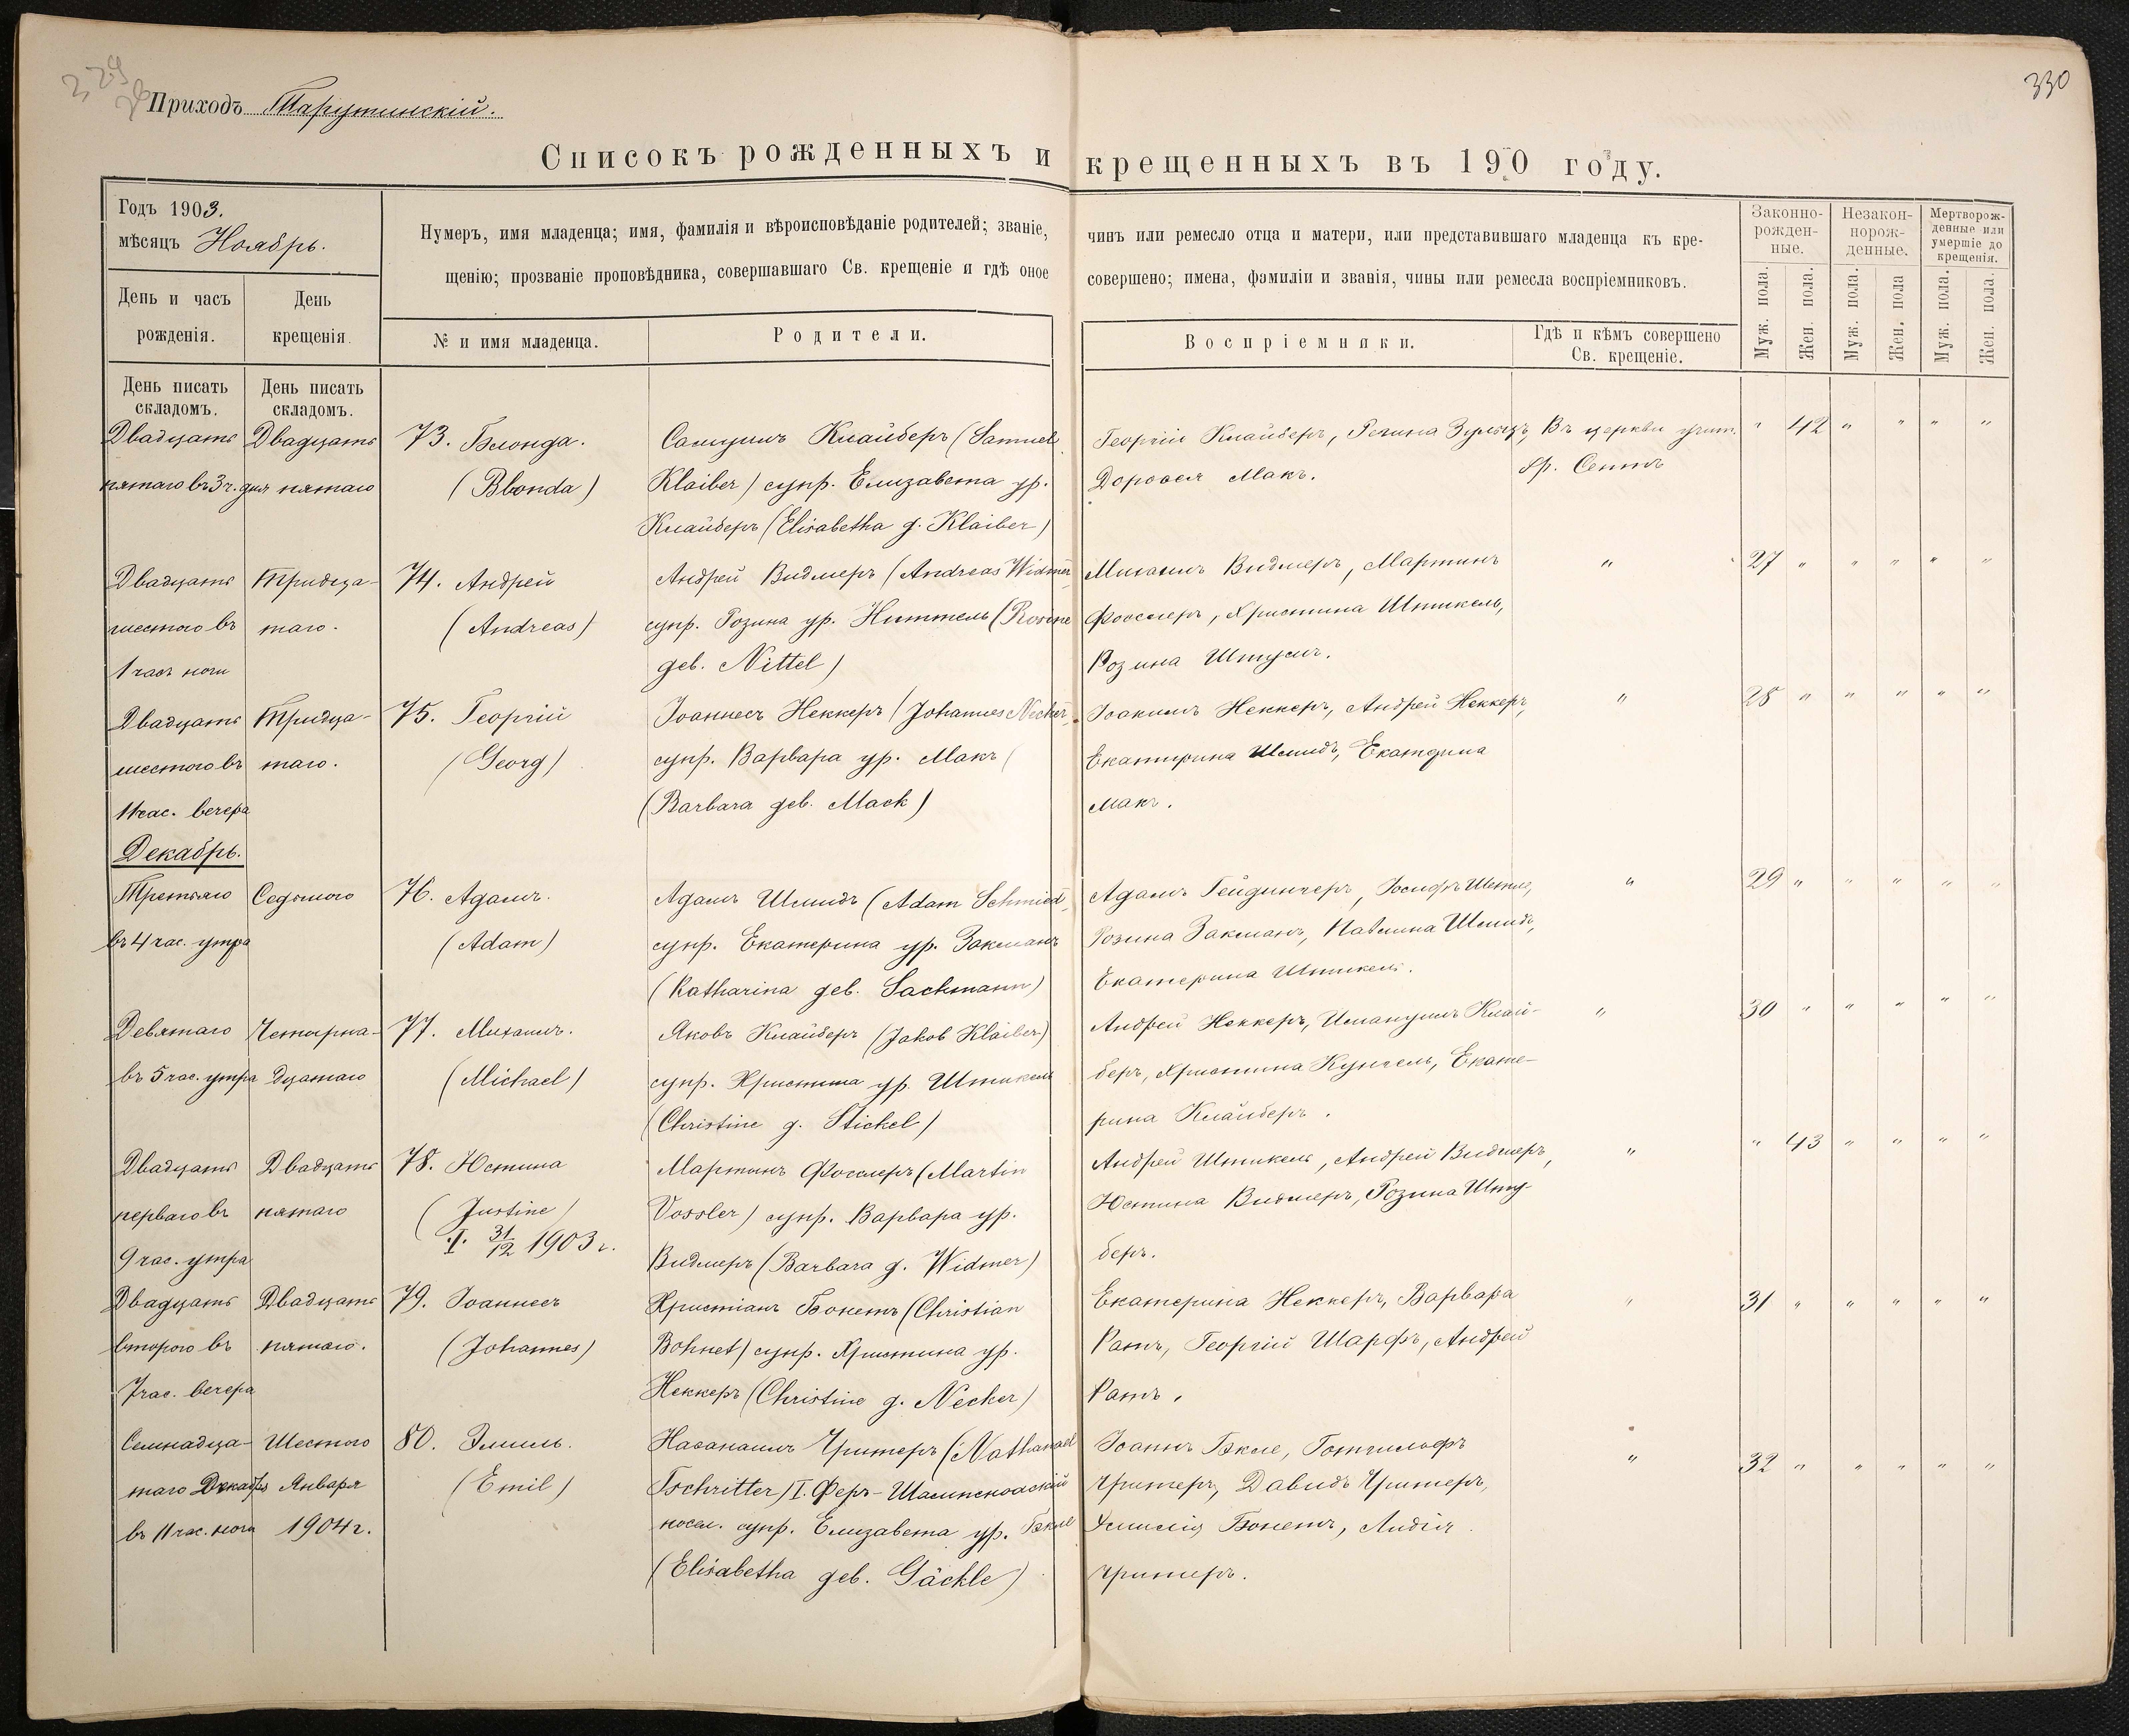 229
330
Приходъ Тарутинскій.
Списокъ рожденныхъ и крещенныхъ въ 190 году.
Годъ 1903.
мѣсяцъ Ноябрь.
Нумеръ, имя младенца; имя, фамилія и вѣроисповѣданіе родителей; званіе, чинъ или ремесло отца и матери, или представившаго младенца къ кре-
щенію; прозваніе проповѣдника, совершавшаго Св. крещеніе и гдѣ оное совершено; имена, фамиліи и званія, чины или ремесла воспріемниковъ.
Законно-
рожден-
ные.
Незакон-
норож-
денные.
Мертворож-
денные или
умершіе до
крещенія.
День и часъ
рожденія.
День
крещенія.
№ и имя младенца.
Родители.
Воспріемники.
Гдѣ и кѣмъ совершено
Св. крещеніе.
Муж. пола.
Жен. пола.
Муж. пола.
Жен. пола
Муж. пола.
Жен. пола.
День писать
складомъ.
День писать
складомъ.
Двадцать
пятаго въ 3 ч. дня
Двадцать
пятаго
73. Блонда.
(Blonda)
Самуилъ Клайберъ (Samuel
Klaiber) супр. Елизавета ур.
Клайберъ (Elisabetha g. Klaiber)
Георгій Клайберъ, Регина Зульцъ,
Доровея Макъ.
Въ церкви учит.
Фр. Сеттъ
" 42 " " " "
Двадцать
шестого въ
1 часъ ночи
Тридца-
таго.
74. Андрей
(Andreas)
Андрей Видмеръ (Andreas Widmer
супр. Розина ур. Ниттель (Rosine
geb. Nittel)
Михаилъ Видмеръ, Мартинъ
Фосслеръ, Христина Штикель,
Розина Штумъ.
"
27 " " " " "
Двадцать
шестого въ
11 час. вечера
Тридца-
таго.
75. Георгій
(Georg)
Іоаннесъ Неккеръ (Johannes Necker,
супр. Варвара ур. Макъ (
(Barbara geb. Mack)
Іоакимъ Неккеръ, Андрей Неккеръ,
Екатерина Шмидъ, Екатерина
Макъ.
"
28 " " " " "
Декабрь.
Третьяго
въ 4 час. утра
Седьмого
76. Адамъ.
(Adam)
Адамъ Шмидъ (Adam Schmied,
супр. Екатерина ур. Закманъ
(Katharina geb. Sackmann)
Адамъ Гейдингеръ, Іосифъ
Розина Закманъ, Шмидъ,
Екатерина Штикель.
"
29 " " " " "
Девятаго
въ 5 час. утра
Четырна-
дцатаго
77. Михаилъ.
(Michael)
Яковъ Клайберъ (Jakob Klaiber)
супр. Христина ур. Штикель
(Christine g. Stickel)
Андрей Неккеръ, Имануилъ Клай-
беръ, Христина Кунчель, Екате-
рина Клайберъ.
"
30 " " " " "
Двадцать
перваго въ
9 час. утра
Двадцать
пятаго
78. Юстина
(Justine)
†. 31/12 1903 г.
Мартинъ Фосслеръ (Martin
Vossler) супр. Варвара ур.
Видмеръ (Barbara g. Widmer)
Андрей Штикель, Андрей Видмеръ,
Юстина Видмеръ, Розина Шту-
беръ.
"
" 43 " " " "
Двадцать
второго въ
7 час. вечера
Двадцать
пятаго.
79. Іоаннесъ
(Johannes)
Христіанъ Бонетъ (Christian
Bohnet) супр. Христина ур.
Неккеръ (Christine g. Necker)
Екатерина Неккеръ, Варвара
Ратъ, Георгій Шарфъ, Андрей
Ратъ.
"
31 " " " " "
Семнадца-
таго Декабрь
въ 11 час. ночи
Шестого
Января
1904 г.
80. Эмиль.
(Emil)
Наѳанаилъ Чритеръ (Nathanael
Tschritter) I. Феръ-Шампенoаскій
посел. супр. Елизавета ур. Гэкле
(Elisabetha geb. Gäckle)
Іоаннъ Гэкле, Готгильфъ
Чритеръ, Давидъ Чритеръ,
Эмилія Бонетъ, Лидія
Чритеръ.
"
32 " " " " "